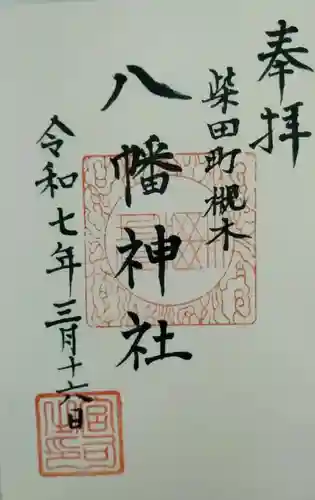 奉拝
柴田町槻木
八幡神社
令和七年三月十六日